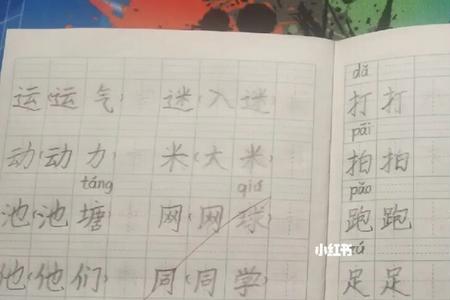 运(运气) 迷(入迷)
动(动力) 米(大米)
táng qiú
池(池塘) 网(网球)
他(他们) 同(同学)
dǎ
打打
pāi
拍拍
pǎo
跑跑
zú
足足
小红书